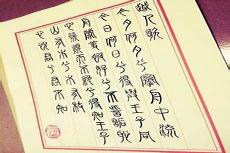 越人歌
今夕何夕兮搴舟中流
今日何日兮得與王子同
舟蒙羞被好兮不訾詬
恥心幾煩而不絕兮得知王子
山有木兮木有枝
心悅君兮君不知